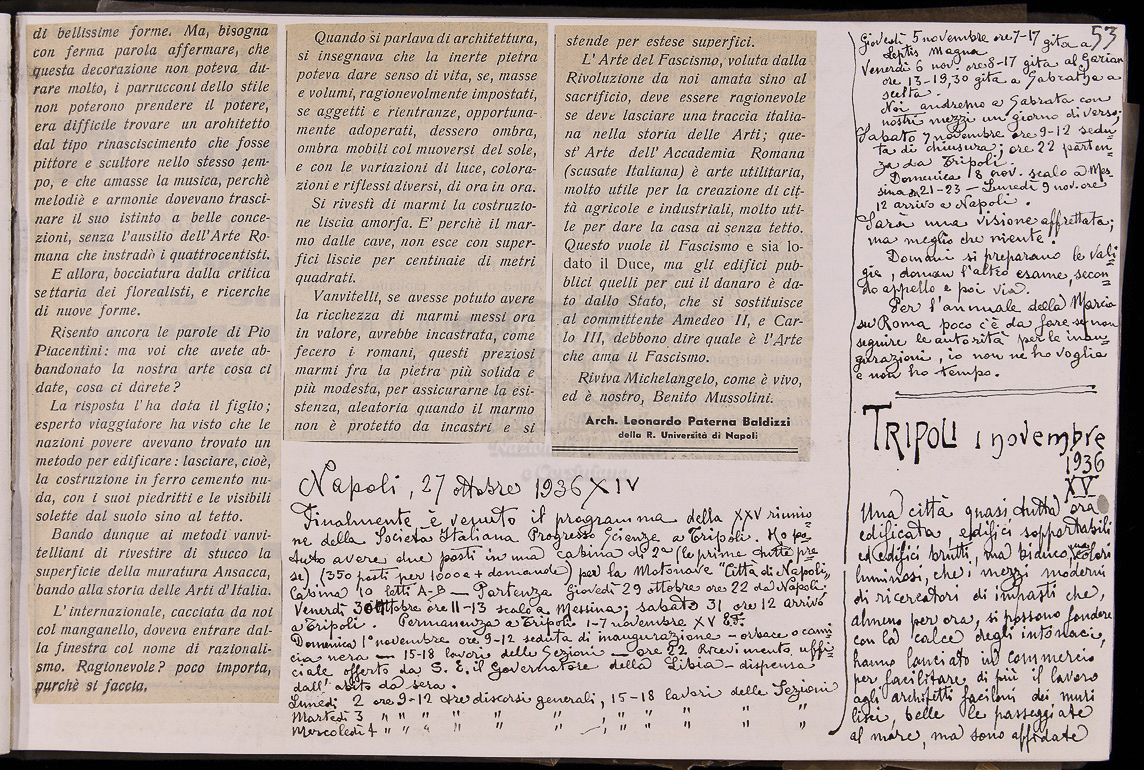 di bellissime forme. Ma, bisogna
con ferma parola affermare, che
questa decorazione non poteva du-
rare molto, i parrucconi dello stile
non poterono prendere il potere,
era difficile trovare un arohitetto
dal tipo rinasciscimento che fosse
pittore e scultore nello stesso tem-
po, e che amasse la musica, perchè
melodiè e armonie dovevano trasci-
nare il suo istinto a belle conce-
zioni, senza l'ausilio dell'Arte Ro-
mana che instradò i quattrocentisti.
E allora, bocciatura dalla critica
settaria dei florealisti, e ricerche
di nuove forme.
Risento ancora le parole di Pio
Piacentini: ma voi che avete ab-
bandonato la nostra arte cosa ci
date, cosa ci darete?
La risposta l'ha dota il figlio;
esperto viaggiatore ha visto che le
nazioni povere avevano trovato un
metodo per edificare: lasciare, cioè,
la costruzione in ferro cemento nu-
da, con i suoi piedritti e le visibili
solette dal suolo sino al tetto.
Bando dunque ai metodi vanvi-
telliani di rivestire di stucco la
superficie della muratura Ansacca,
bando alla storia delle Arti d'Italia.
L'internazionale, cacciata da noi
col manganello, doveva entrare dal-
la finestra col nome di razionali-
smo. Ragionevole? poco importa,
purchè si faccia.
Quando si parlava di architettura,
si insegnava che la inerte pietra
poteva dare senso di vita, se, masse
e volumi, ragionevolmente impostati,
se aggetti e rientranze, opportuna-
mente adoperati, dessero ombra,
ombra mobili col muoversi del sole,
e con le variazioni di luce, colora-
zioni e riflessi diversi, di ora in ora.
Si rivestì di marmi la costruzio-
ne liscia amorfa. E' perchè il mar-
mo dalle cave, non esce con super-
fici liscie per centinaie di metri
quadrati.
Vanvitelli, se avesse potuto avere
la ricchezza di marmi messi ora
in valore, avrebbe incastrata, come
fecero i romani, questi preziosi
marmi fra la pietra più solida e
più modesta, per assicurarne la esi-
stenza, aleatoria quando il marmo
non è protetto da incastri e si
stende per estese superfici.
L'Arte del Fascismo, voluta dalla
Rivoluzione da noi amata sino al
sacrificio, deve essere ragionevole
se deve lasciare una traccia italia-
na nella storia delle Arti; que-
st' Arte dell'Accademia Romana
(scusate Italiana) è arte utilitaria,
molto utile per la creazione di cit-
tà agricole e industriali, molto uti-
le per dare la casa ai senza tetto.
Questo vuole il Fascismo e sia lo-
dato il Duce, ma gli edifici pub-
blici quelli per cui il danaro è da-
to dallo Stato, che si sostituisce
al committente Amedeo II, e Car-
lo III, debbono dire quale è l'Arte
che ama il Fascismo.
Riviva Michelangelo, come è vivo,
ed è nostro, Benito Mussolini.
Arch. Leonardo Paterna Baldizzi
della R. Università di Napoli
Napoli, 27 ottobre 1936 XIV
Finalmente è venuto il programma della XXV riunio=
ne della Società Italiana Progresso Scienze a Tripoli. Ho po=
tuto avere due posti in una cabina di 2ª (le prime tutte pre
se) (350 posti per 1000 e + domande) per la Motonave "Città di Napoli"
Cabina 10 letti A-B — Partenza Giovedì 29 ottobre ore 22 da Napoli
Venerdì 30 ottobre ore 11-13 scalo a Messina; sabato 31 ore 12 arrivo
a Tripoli. Permanenza a Tripoli 1-7 novembre XV E.F.
Domenica 1° novembre ore 9-12 seduta di inaugurazione — orbace o cami
cia nera — 15-18 lavori delle Sezioni — ore 22 Ricevimento uffi=
ciale offerto da S. E. il Governatore della Libia — dispensa
dall'abito da sera.
Lunedì 2 ore 9-12 tre discorsi generali, 15-18 lavori delle Sezioni
Martedì 3 " " " " " , " " " " "
Mercoledì 4 " " " " " " " " " "
53
Giovedì 5 novembre ore 7-17 gita a
Leptis Magna
Venerdì 6 nov. ore 8-17 gita al Garian
ore 13-19,30 gita a Sabratha a
scelta.
Noi andremo a Sabrata con
nostri mezzi un giorno diverso
Sabato 7 novembre ore 9-12 sedu=
ta di chiusura; ore 22 parten=
za da Tripoli.
Domenica 8 nov. scalo a Mes
sina 21-23 — Lunedì 9 nov. ore
12 arrivo a Napoli.
Sarà una visione affrettata;
ma meglio che niente.
Domani si preparano le vali=
gie, doman l'altro esame, secon
do appello e poi via.
Per l'annuale della Marcia
su Roma poco c'è da fare se non
seguire le autorità per le inau=
gurazioni, io non ne ho voglia
e non ho tempo.
TRIPOLI 1 novembre
1936
XV
Una città quasi tutta ora
edificata, edifici sopportabili
ed edifici brutti, ma bianco, colori
luminosi, che i mezzi moderni
di ricercatori di impasti che,
almeno per ora, si possono fondere
con la calce degli intonaci,
hanno lanciato in commercio
per facilitare di più il lavoro
agli architetti faciloni dei muri
lisci, belle le passeggiate
al mare, ma sono affidate